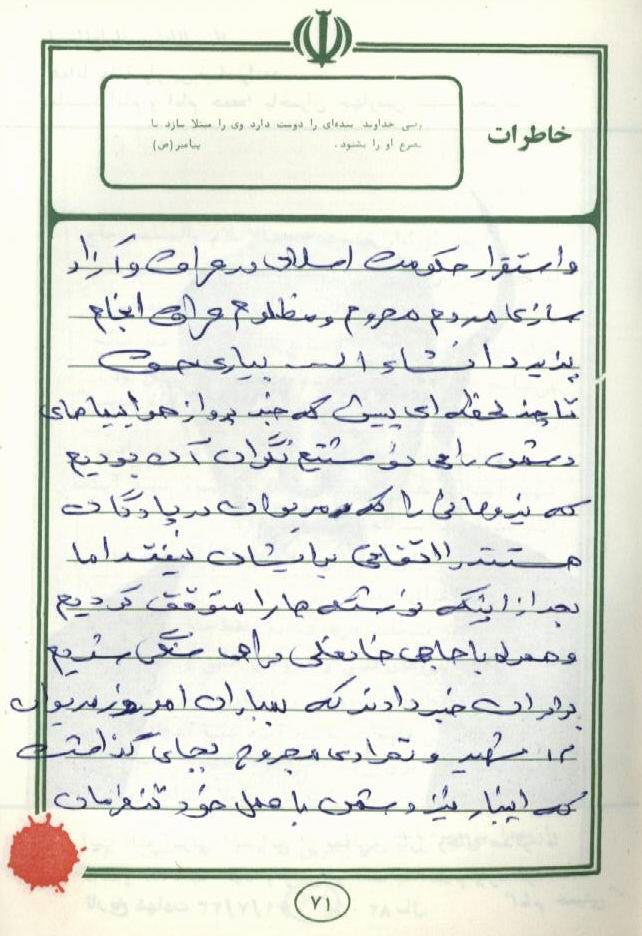 خاطرات
وسی خداوند بنده‌ای را دوست دارد وی را مبتلا سازد تا
تضرع او را بشنود. پیامبر(ص)
و استقرار حکومت اسلامی در عراق و آزاد
سازی مردم محروم و مظلوم عراق انجام
پذیرد انشاء الله بیاری حق
تا چند لحظه ای پیش که چند پرواز هواپیماهای
دشمن را می نوشتیم نگران آن بودیم
که نیروهائی را که در مریوان در پادگان
هستند اتفاقی برایشان نیفتد اما
بعد از اینکه نوشته ها را متوقف کردیم
و همراه با حاجی خانعلی راهی سنگر شدیم
برادران خبر دادند که بمباران امروز مریوان
۱۳ شهید و تعدادی مجروح بجای گذاشت
که اینبار نیز دشمن با عمل خود
۷۱